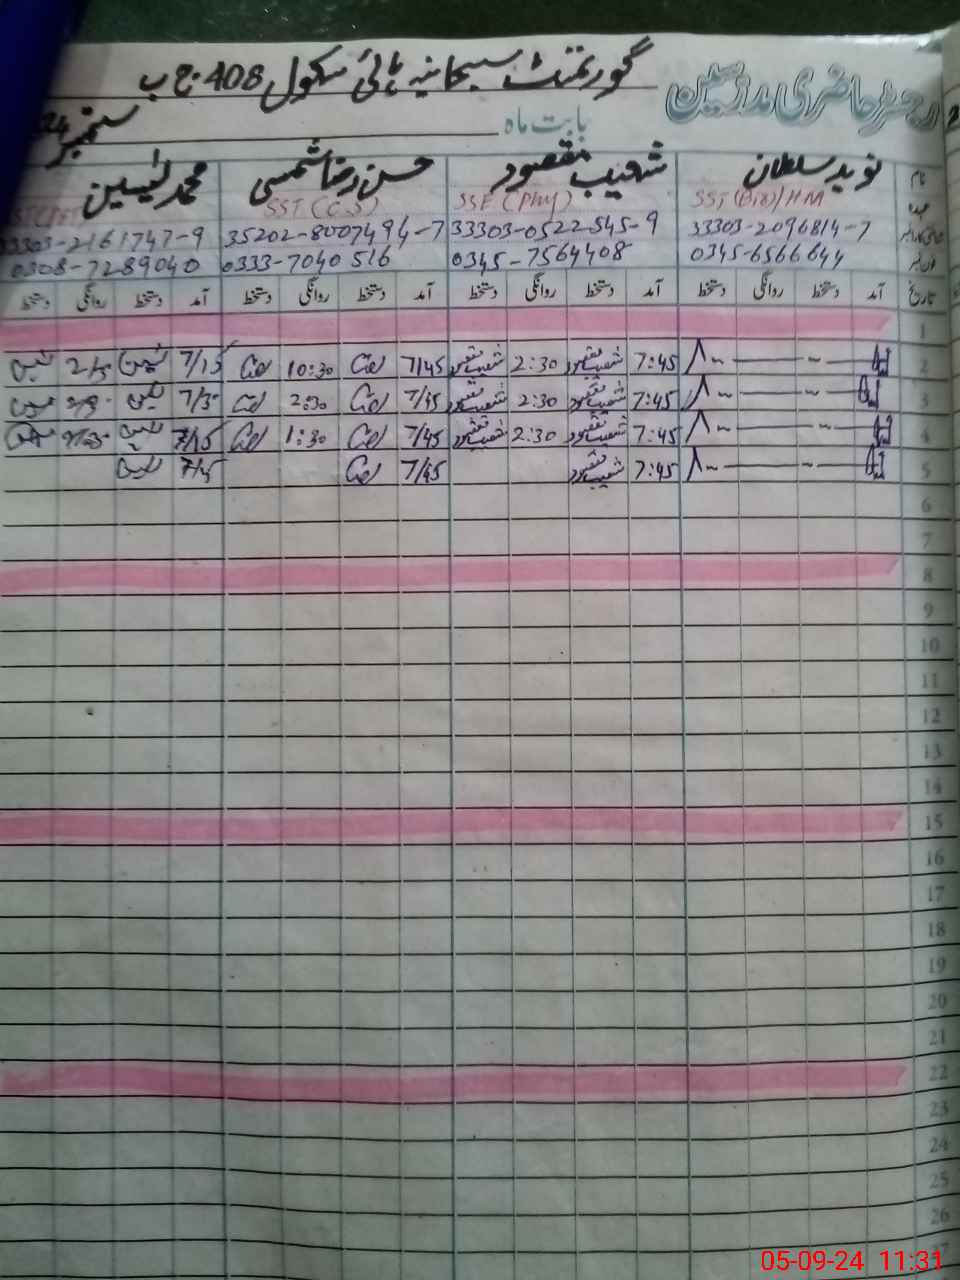 رجسٹر حاضری مدرسین
گورنمنٹ سبحانیہ ہائی سکول 408 ج ب
بابت ماہ ستمبر 24
نام نوید سلطان شعیب مقصود حسن رضا شمسی محمد یٰسین
عہدہ SST (Bio)/HM SSE (Phy) SST (C.S)
33303-2096814-7 33303-0522545-9 35202-8007494-7 33303-2161747-9
0345-6566644 0345-7564408 0333-7040516 0308-7289040
تاریخ آمد دستخط روانگی دستخط آمد دستخط روانگی دستخط آمد دستخط روانگی دستخط آمد دستخط روانگی دستخط
1
2 7:45 شعیب مقصود 2:30 شعیب مقصود 7/45 10:30 7/15
3 7:45 شعیب مقصود 2:30 شعیب مقصود 7/45 2:30
4 7:45 شعیب مقصود 2:30 شعیب مقصود 7/45 1:30 7/15
5 7:45 شعیب مقصود 7/45
6
7
8
9
10
11
12
13
14
15
16
17
18
19
20
21
22
23
24
25
26
05-09-24 11:31